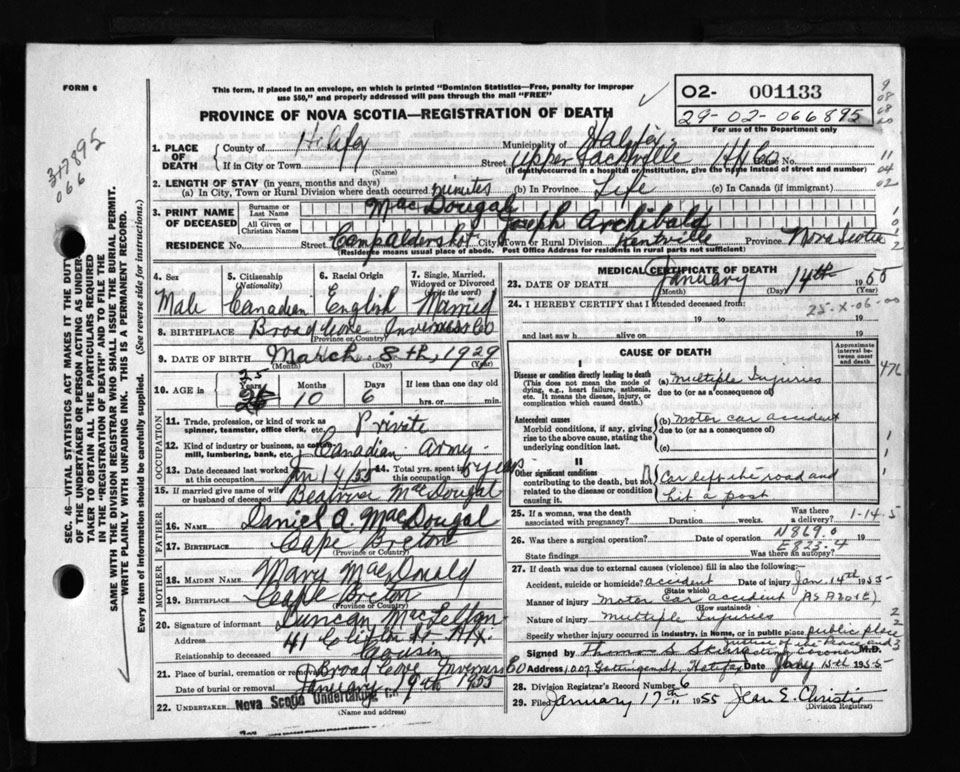 FORM 6
This form, if placed in an envelope, on which is printed "Dominion Statistics—Free, penalty for improper
use $50," and properly addressed will pass through the mail "FREE"
02- 001133
29-02-066895
For use of the Department only
317895
066
PROVINCE OF NOVA SCOTIA—REGISTRATION OF DEATH
1. PLACE OF DEATH
County of Halifax
Municipality of Halifax
If in City or Town (Name)
Street Upper Sackville Hfx Co No.
(If death occurred in a hospital or institution, give the name instead of street and number)
2. LENGTH OF STAY (in years, months and days)
(a) In City, Town or Rural Division where death occurred minutes (b) In Province Life (c) In Canada (if immigrant)
3. PRINT NAME OF DECEASED
Surname or Last Name MacDougal
All Given or Christian Names Joseph Archibald
RESIDENCE No. Street Camp Aldershot City, Town or Rural Division Kentville Province Nova Scotia
(Residence means usual place of abode. Post Office Address for Residents in rural parts not sufficient)
4. Sex Male
5. Citizenship (Nationality) Canadian
6. Racial Origin English
7. Single, Married, Widowed or Divorced (Write the word) Married
8. BIRTHPLACE Broad Cove Inverness Co
(Province or Country)
9. DATE OF BIRTH March 8th, 1929
(Month) (Day) (Year)
10. AGE in 25 Years 10 Months 6 Days If less than one day old hrs. or min.
OCCUPATION
11. Trade, profession, or kind of work as spinner, teamster, office clerk, etc. Private
12. Kind of industry or business, as cotton mill, lumbering, bank, etc. Canadian Army
13. Date deceased last worked at this occupation Jan 14/55
14. Total yrs. spent in this occupation 5 years
15. If married give name of wife or husband of deceased Beatrice MacDougal
FATHER
16. NAME Daniel A. MacDougal
17. BIRTHPLACE Cape Breton
(Province or Country)
MOTHER
18. MAIDEN NAME Mary MacDonald
19. BIRTHPLACE Cape Breton
(Province or Country)
20. Signature of informant Duncan MacLellan
Address 41 St. Hfx.
Relationship to deceased Cousin
21. Place of burial, cremation or removal Broad Cove Inverness Co
Date of burial or removal January 19th 1955
22. UNDERTAKER Nova Scotia Undertaking Co
(Name and address)
MEDICAL CERTIFICATE OF DEATH
23. DATE OF DEATH January 14th 1955
(Month) (Day) (Year)
24. I HEREBY CERTIFY that I attended deceased from:
25-X-06-00
19 to 19
and last saw h alive on 19
CAUSE OF DEATH
Approximate interval between onset and death
I
Disease or condition directly leading to death
(This does not mean the mode of dying, e.g., heart failure, asthenia, etc. It means the disease, injury, or complication which caused death.)
(a) Multiple Injuries
due to (or as a consequence of)
Antecedent causes
Morbid conditions, if any, giving rise to the above cause, stating the underlying condition last.
(b) Motor car accident
due to (or as a consequence of)
(c)
II
Other significant conditions
contributing to the death, but not related to the disease or condition causing it.
Car left the road and
hit a post
476
25. If a woman, was the death associated with pregnancy? Duration weeks. Was there a delivery?
1-14-5
26. Was there a surgical operation? Date of operation 19
N869.0
E823.4
State findings Was there an autopsy?
27. If death was due to external causes (violence) fill in also the following:
Accident, suicide or homicide? accident Date of injury Jan. 14th 1955
(State which)
Manner of injury Motor Car accident (As Above)
(How sustained)
Nature of injury Multiple Injuries
Specify whether injury occurred in industry, in home, or in public place public place
Justice of the Peace and
Signed by Thomas S. Acting Coroner M.D.
Address Gottingen St, Halifax Date Jany 15th 1955
28. Division Registrar's Record Number 6
29. Filed January 17th 1955 Jean E. Christie
(Division Registrar)
SEC. 46—VITAL STATISTICS ACT MAKES IT THE DUTY
OF THE UNDERTAKER OR PERSON ACTING AS UNDER-
TAKER TO OBTAIN ALL THE PARTICULARS REQUIRED
IN THE "REGISTRATION OF DEATH" AND TO FILE THE
SAME WITH THE DIVISION REGISTRAR WHO SHALL ISSUE THE BURIAL PERMIT.
WRITE PLAINLY WITH UNFADING INK. THIS IS A PERMANENT RECORD.
Every item of information should be carefully supplied. (See reverse side for instructions.)